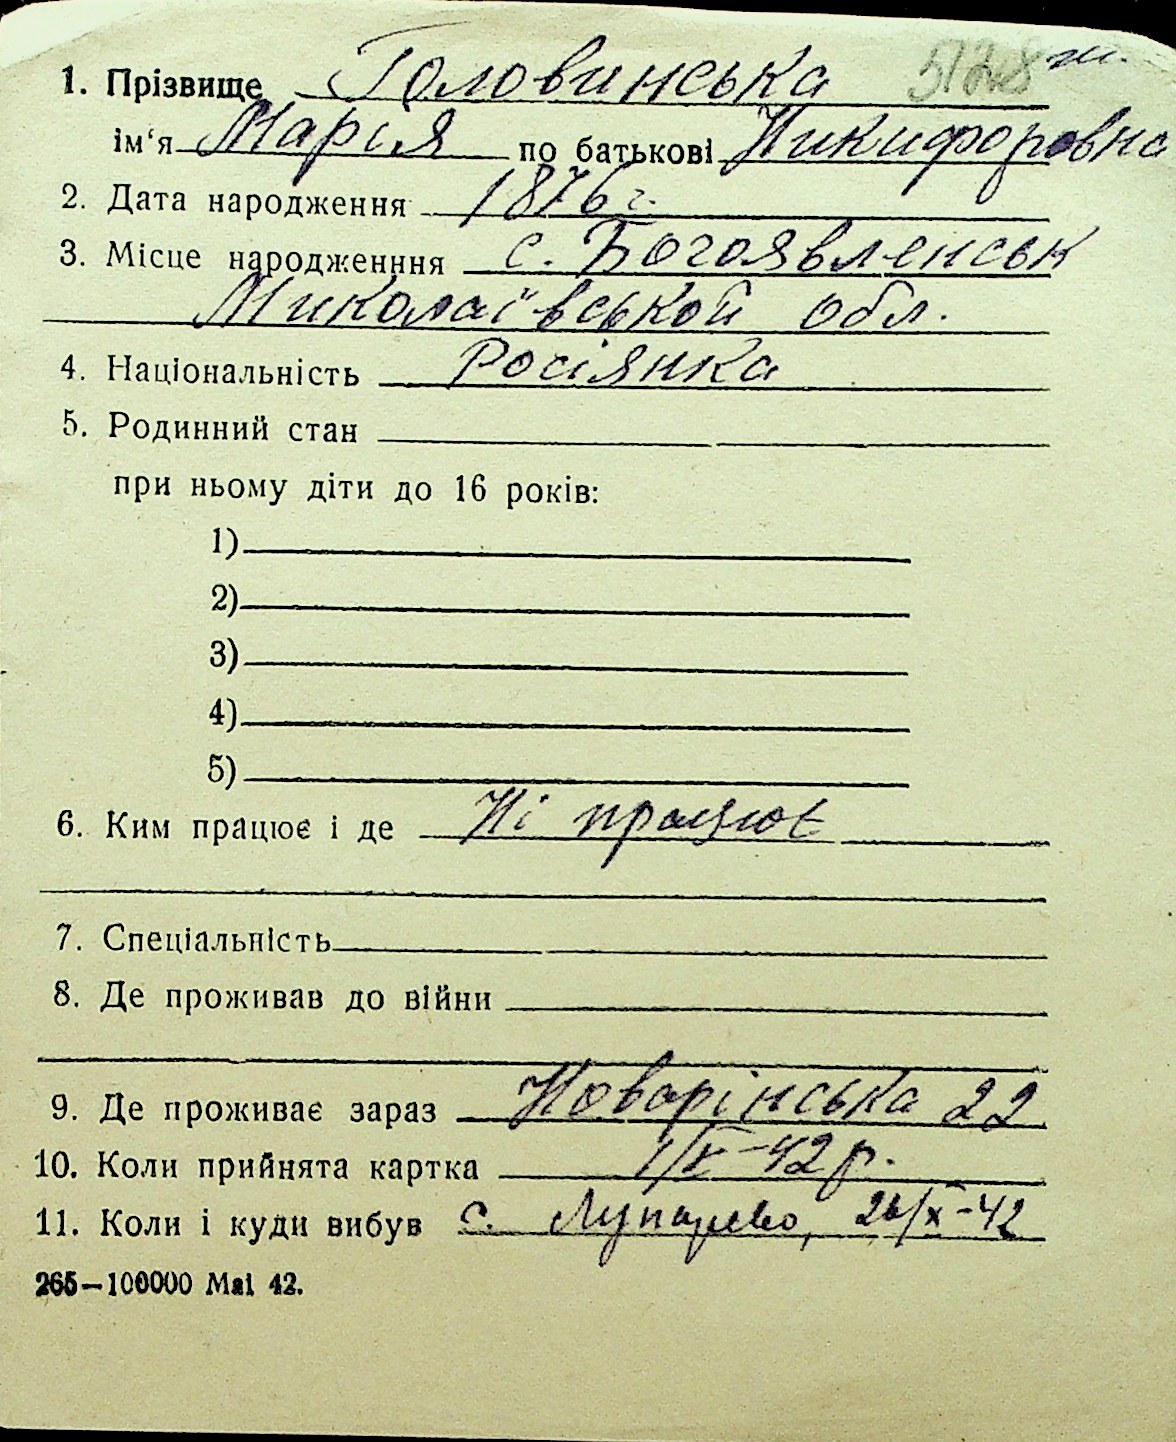 5128 ж.
1. Прізвище Головинська
ім‘я Марія по батькові Никифоровна
2. Дата народження 1876 г.
3. Місце народженння с. Богоявленськ
Миколаївськой обл.
4. Національність Росіянка
5. Родинний стан
при ньому діти до 16 років:
1)
2)
3)
4)
5)
6. Ким працює і де Ні працює
7. Спеціальність
8. Де проживав до війни
9. Де проживає зараз Новарінська 22
10. Коли прийнята картка 1/X-42 р.
11. Коли і куди вибув с. Лупарево, 26/X-42
265—100000 Mai 42.